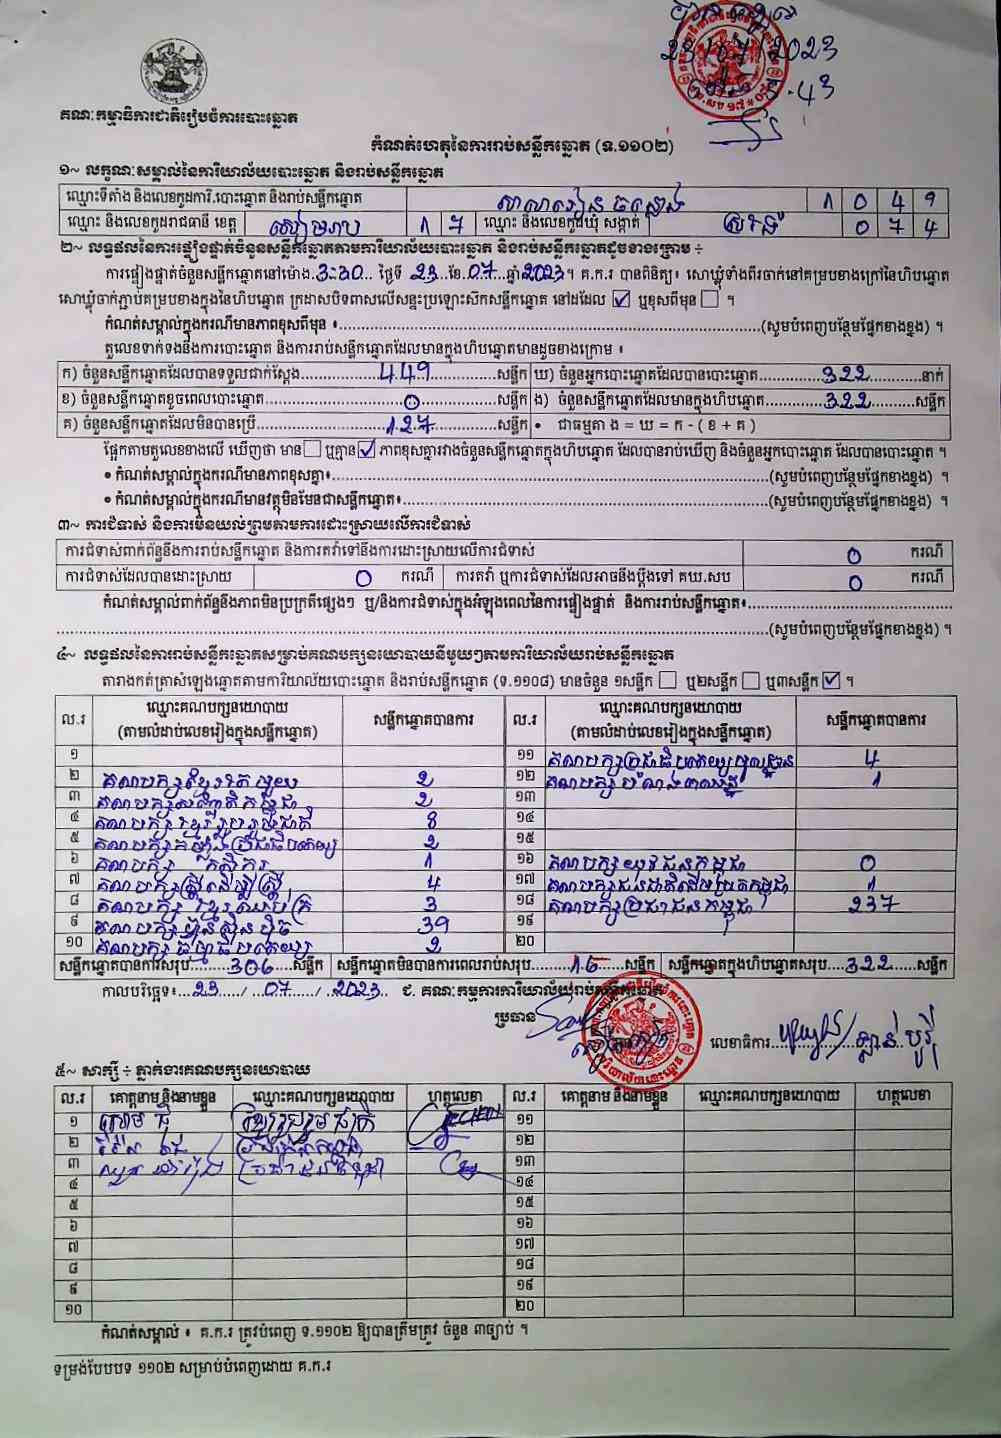 23/07/2023
គណៈកម្មាធិការជាតិរៀបចំការបោះឆ្នោត
កំណត់ហេតុនៃការរាប់សន្លឹកឆ្នោត (ទ.១១០២)
១~ លក្ខណៈសម្គាល់នៃការិយាល័យបោះឆ្នោត និងរាប់សន្លឹកឆ្នោត
ឈ្មោះទីតាំង និងលេខកូដការិ.បោះឆ្នោត និងរាប់សន្លឹកឆ្នោត សាលារៀន 1 0 4 9
ឈ្មោះ និងលេខកូដរាជធានី ខេត្ត សៀមរាប 1 7 ឈ្មោះ និងលេខកូដឃុំ សង្កាត់ 0 7 4
២~ លទ្ធផលនៃការផ្ទៀងផ្ទាត់ចំនួនសន្លឹកឆ្នោតតាមការិយាល័យបោះឆ្នោត និងរាប់សន្លឹកឆ្នោតដូចខាងក្រោម ÷
ការផ្ទៀងផ្ទាត់ចំនួនសន្លឹកឆ្នោតនៅម៉ោង 3:30 ថ្ងៃទី 23 ខែ 07 ឆ្នាំ 2023។ គ.ក.រ បានពិនិត្យ៖ សោឃ្លុំទាំងពីរចាក់នៅគម្របខាងក្រៅនៃហិបឆ្នោត
សោឃ្លុំចាក់ភ្ជាប់គម្របខាងក្នុងនៃហិបឆ្នោត ក្រដាសបិទពាសលើសន្ទះប្រឡោះស៊កសន្លឹកឆ្នោត នៅដដែល ☑ ឬខុសពីមុន ☐ ។
កំណត់សម្គាល់ក្នុងករណីមានភាពខុសពីមុន ៖ (សូមបំពេញបន្ថែមផ្នែកខាងខ្នង) ។
តួលេខទាក់ទងនឹងការបោះឆ្នោត និងការរាប់សន្លឹកឆ្នោតដែលមានក្នុងហិបឆ្នោតមានដូចខាងក្រោម ៖
ក) ចំនួនសន្លឹកឆ្នោតដែលបានទទួលជាក់ស្តែង 449 សន្លឹក ឃ) ចំនួនអ្នកបោះឆ្នោតដែលបានបោះឆ្នោត 322 នាក់
ខ) ចំនួនសន្លឹកឆ្នោតខូចពេលបោះឆ្នោត 0 សន្លឹក ង) ចំនួនសន្លឹកឆ្នោតដែលមានក្នុងហិបឆ្នោត 322 សន្លឹក
គ) ចំនួនសន្លឹកឆ្នោតដែលមិនបានប្រើ 127 សន្លឹក • ជាធម្មតា ង = ឃ = ក - ( ខ + គ )
ផ្អែកតាមតួលេខខាងលើ ឃើញថា មាន ☐ ឬគ្មាន ☑ ភាពខុសគ្នារវាងចំនួនសន្លឹកឆ្នោតក្នុងហិបឆ្នោត ដែលបានរាប់ឃើញ និងចំនួនអ្នកបោះឆ្នោត ដែលបានបោះឆ្នោត ។
• កំណត់សម្គាល់ក្នុងករណីមានភាពខុសគ្នា៖ (សូមបំពេញបន្ថែមផ្នែកខាងខ្នង) ។
• កំណត់សម្គាល់ក្នុងករណីមានវត្ថុមិនមែនជាសន្លឹកឆ្នោត៖ (សូមបំពេញបន្ថែមផ្នែកខាងខ្នង) ។
៣~ ការជំទាស់ និងការមិនយល់ព្រមតាមការដោះស្រាយលើការជំទាស់
ការជំទាស់ពាក់ព័ន្ធនឹងការរាប់សន្លឹកឆ្នោត និងការតវ៉ាទៅនឹងការដោះស្រាយលើការជំទាស់ 0 ករណី
ការជំទាស់ដែលបានដោះស្រាយ 0 ករណី ការតវ៉ា ឬការជំទាស់ដែលអាចនឹងប្តឹងទៅ គឃ.សប 0 ករណី
កំណត់សម្គាល់ពាក់ព័ន្ធនឹងភាពមិនប្រក្រតីផ្សេងៗ ឬ/និងការជំទាស់ក្នុងអំឡុងពេលនៃការផ្ទៀងផ្ទាត់ និងការរាប់សន្លឹកឆ្នោត៖
(សូមបំពេញបន្ថែមផ្នែកខាងខ្នង) ។
៤~ លទ្ធផលនៃការរាប់សន្លឹកឆ្នោតសម្រាប់គណបក្សនយោបាយនីមួយៗតាមការិយាល័យរាប់សន្លឹកឆ្នោត
តារាងកត់ត្រាសំឡេងឆ្នោតតាមការិយាល័យបោះឆ្នោត និងរាប់សន្លឹកឆ្នោត (ទ.១១០៨) មានចំនួន ១សន្លឹក ☐ ឬ២សន្លឹក ☐ ឬ៣សន្លឹក ☑ ។
ល.រ ឈ្មោះគណបក្សនយោបាយ (តាមលំដាប់លេខរៀងក្នុងសន្លឹកឆ្នោត) សន្លឹកឆ្នោតបានការ ល.រ ឈ្មោះគណបក្សនយោបាយ (តាមលំដាប់លេខរៀងក្នុងសន្លឹកឆ្នោត) សន្លឹកឆ្នោតបានការ
១ ១១ គណបក្សប្រជាធិបតេយ្យមូលដ្ឋាន 4
២ គណបក្សខ្មែរតែមួយ 2 ១២ គណបក្ស 1
៣ គណបក្សសញ្ជាតិកម្ពុជា 2 ១៣
៤ គណបក្សខ្មែររួបរួមជាតិ 8 ១៤
៥ គណបក្សកម្លាំងប្រជាធិបតេយ្យ 2 ១៥
៦ គណបក្ស កសិករ 1 ១៦ គណបក្សយុវជនកម្ពុជា 0
៧ គណបក្សស្រ្តីដើម្បីស្រ្តី 4 ១៧ គណបក្សជនជាតិដើមប្រជាកម្ពុជា 1
៨ គណបក្សខ្មែរឈប់ក្រ 3 ១៨ គណបក្សប្រជាជនកម្ពុជា 237
៩ គណបក្សហ៊្វុនស៊ិនប៉ិច 39 ១៩
១០ គណបក្សធម្មាធិបតេយ្យ 2 ២០
សន្លឹកឆ្នោតបានការសរុប 306 សន្លឹក សន្លឹកឆ្នោតមិនបានការពេលរាប់សរុប 16 សន្លឹក សន្លឹកឆ្នោតក្នុងហិបឆ្នោតសរុប 322 សន្លឹក
កាលបរិច្ឆេទ៖ 23 / 07 / 2023 ជ. គណៈកម្មការការិយាល័យរាប់សន្លឹកឆ្នោត
ប្រធាន
លេខាធិការ
៥~ សាក្សី ÷ ភ្នាក់ងារគណបក្សនយោបាយ
ល.រ គោត្តនាម និងនាមខ្លួន ឈ្មោះគណបក្សនយោបាយ ហត្ថលេខា ល.រ គោត្តនាម និងនាមខ្លួន ឈ្មោះគណបក្សនយោបាយ ហត្ថលេខា
១ ខ្មែររួបរួមជាតិ ១១
២ ១២
៣ ១៣
៤ ១៤
៥ ១៥
៦ ១៦
៧ ១៧
៨ ១៨
៩ ១៩
១០ ២០
កំណត់សម្គាល់ ៖ គ.ក.រ ត្រូវបំពេញ ទ.១១០២ ឱ្យបានត្រឹមត្រូវ ចំនួន ៣ច្បាប់ ។
ទម្រង់បែបបទ ១១០២ សម្រាប់បំពេញដោយ គ.ក.រ